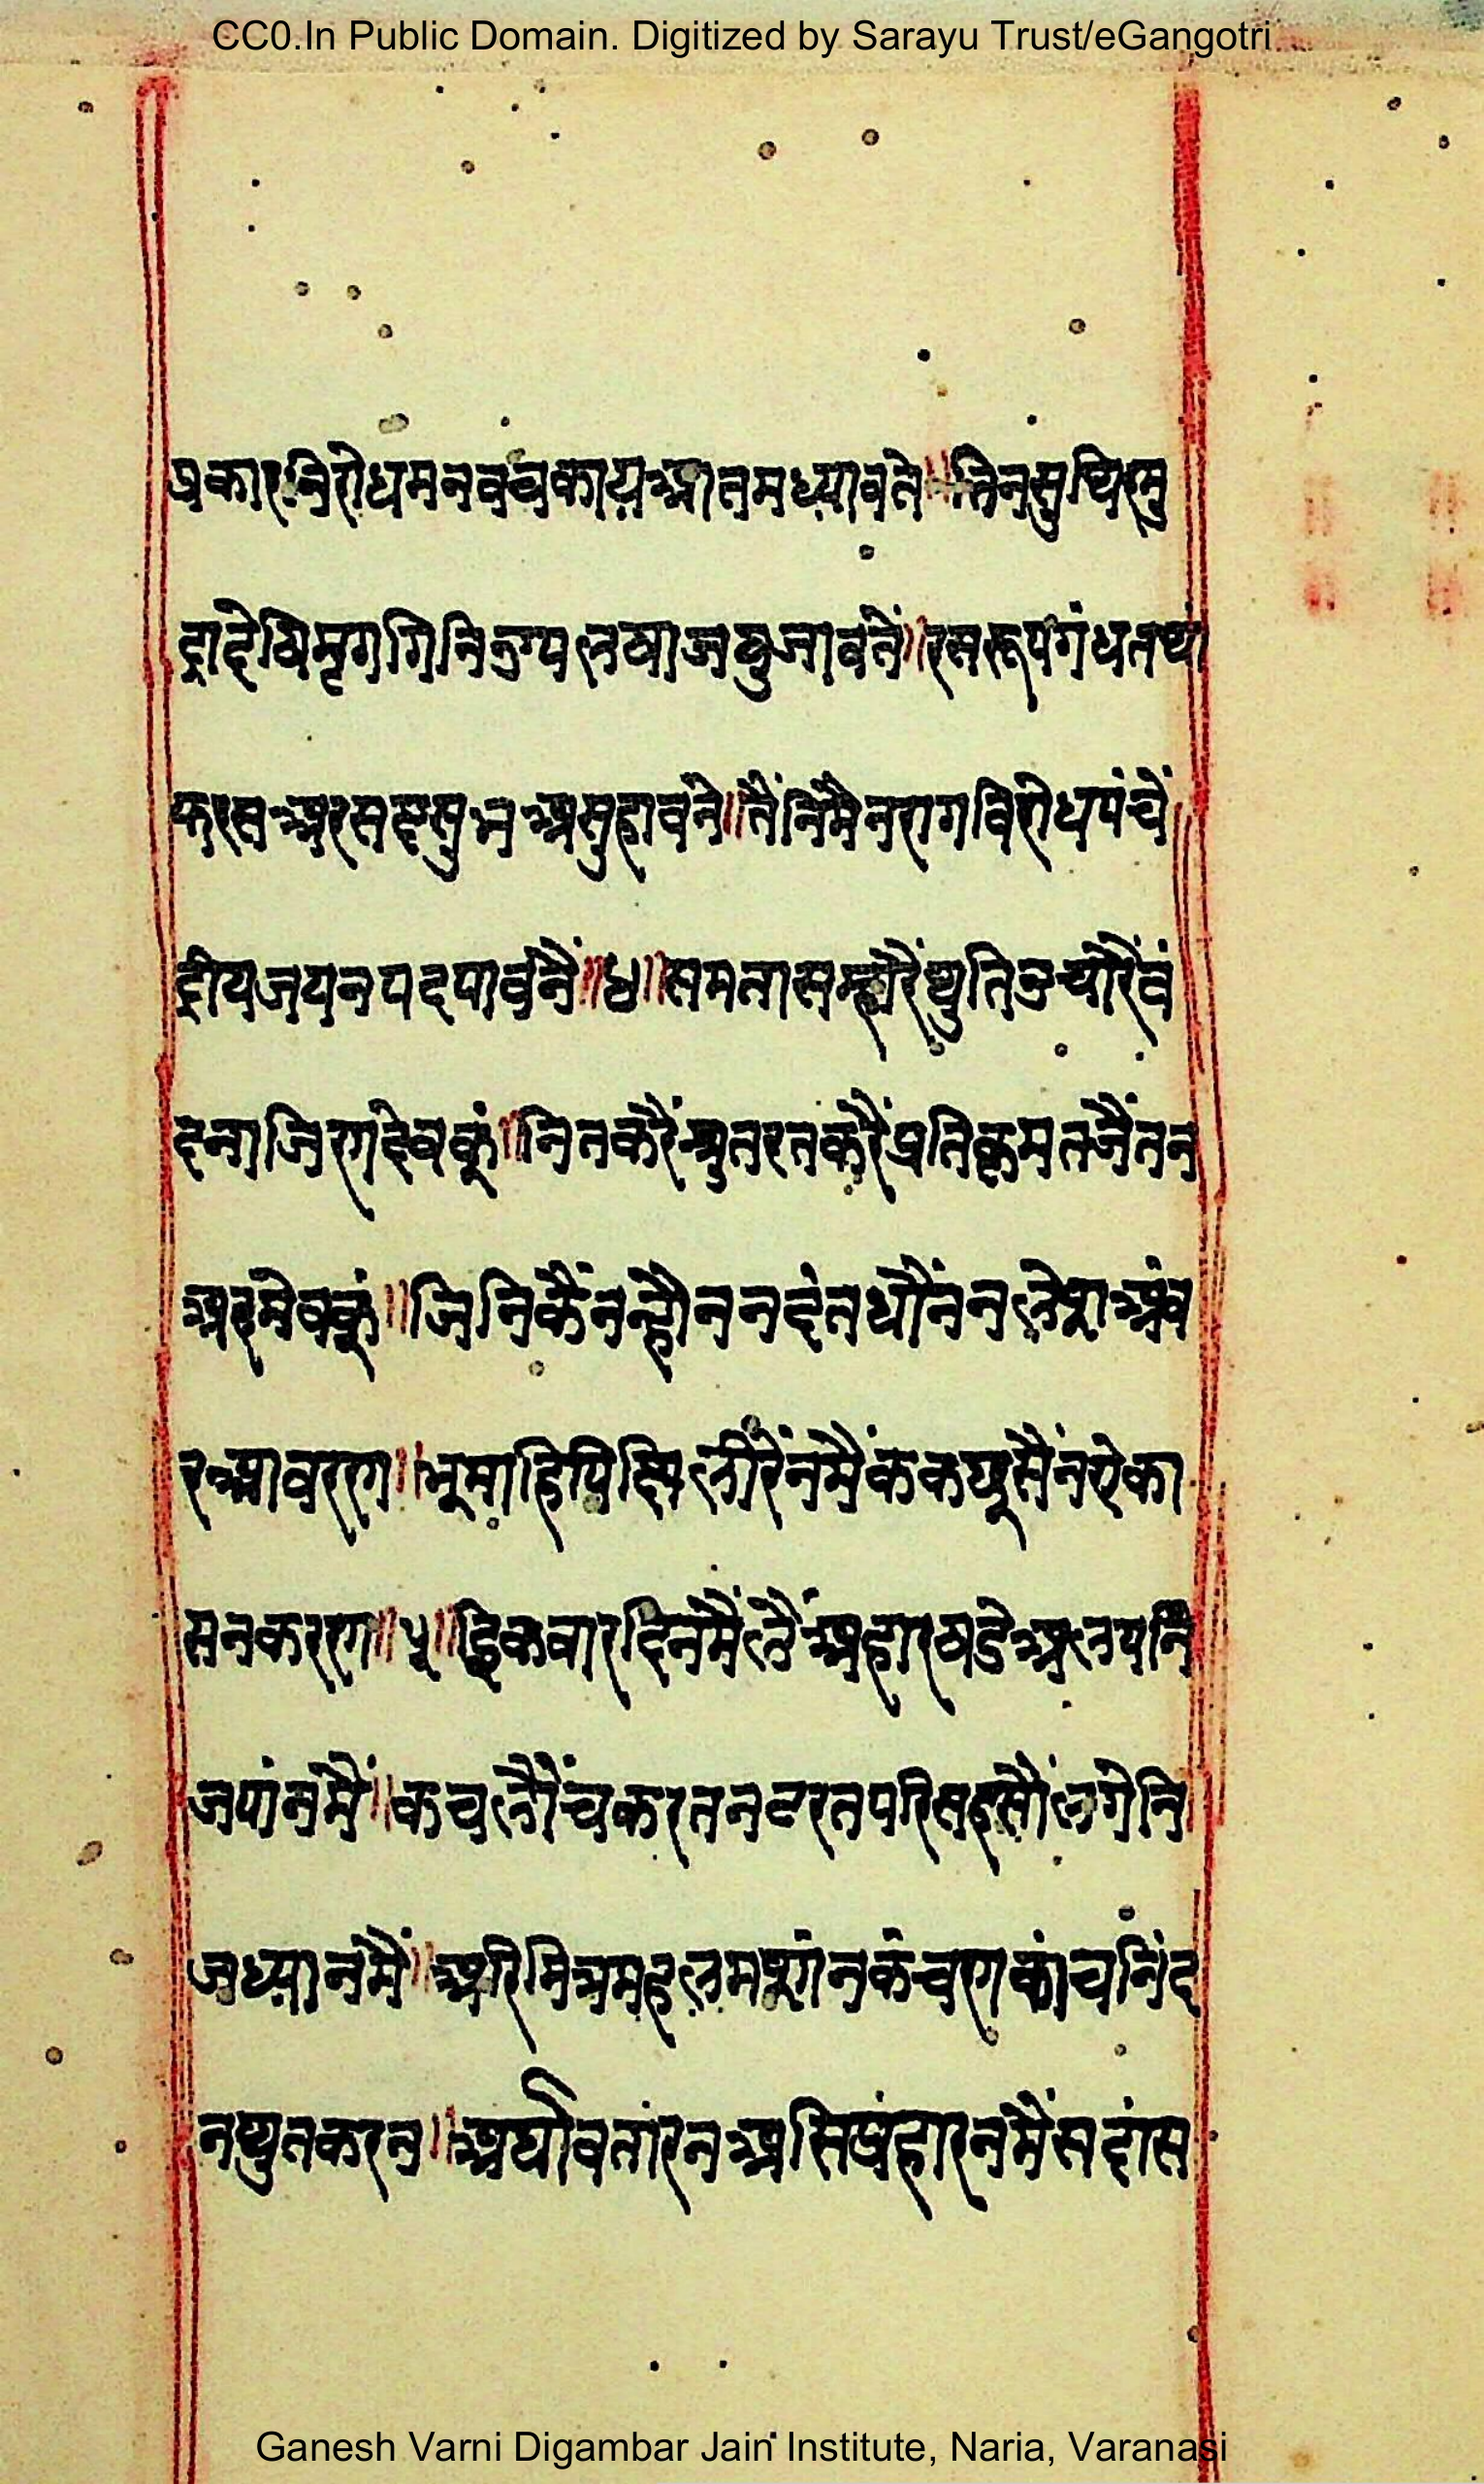 CC0.In Public Domain. Digitized by Sarayu Trust/eGangotri
प्रकारनिरोधमनवचकायआतमध्यावते॥तिनसुथिरमु
द्रादेषिमृगगिनिउपलषाजषुजावंते॥रसरूपगंधतथा
फरसअरसहसुभअसुहावंने॥तैंनिमैनरागविरोधपंचें
द्रीयजयनपदपावंनैं॥४॥समतासम्हारैंथुतिउचारैंवं
दनाजिणदेवकूं॥नितकरैंश्रुतरतकरैंप्रतिक्रमतजैंतन
अहमेवकूं॥जिनिकैंनन्हौंननदंतधौंनंनलेशअंव
रआवरण॥भूमाहिपिछिलीरेंनमैंककछूसैंनऐका
सनकरण॥५॥इिकवारदिनमैंलैंअहारषडेअलपनि
जपांनमैं॥कचलौंचकरतनटरतपरिसहसौंलगेनि
जध्यानमैं॥अरिमित्रमहलमशांनकंचणकांचनिंद
नथुतकरन॥अर्घावतांरनअसिप्रंहारनमैंसदांस
Ganesh Varni Digambar Jain Institute, Naria, Varanasi